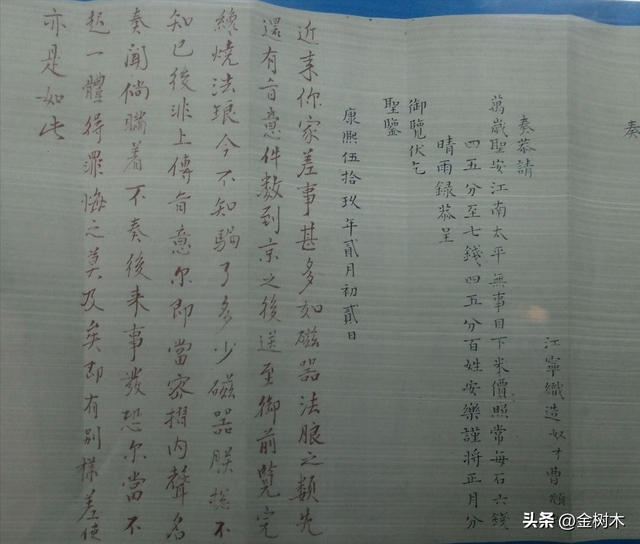 奏
江寧織造奴才曹頫
奏恭請
萬歲聖安江南太平無事目下米價照常每石六錢
四五分至七錢四五分百姓安樂謹將正月分
晴雨錄恭呈
御覽伏乞
聖鑒
康熙伍拾玖年貳月初貳日
近来你家差事甚多如磁器法琅之類先
還有旨意件數到京之後送至御前覽完
纔燒法琅今不知騙了多少磁器朕總不
知已後非上傳旨意尔即當密摺内聲名
奏聞倘瞞着不奏後来事發恐尔當不
起一體得罪悔之莫及矣即有別樣差使
亦是如此
头条 @金树木